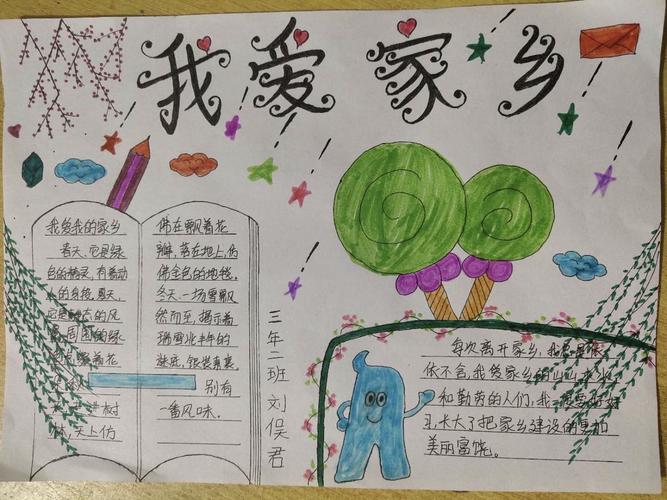 我爱家乡
我爱我的家乡
春天,它是绿
色的精灵,有着动
的身
夏天,
它是
的风
周围的绿
着花
树
林,天上仿
佛在飘着花
瓣,落在地上,仿
佛金色的地毯。
冬天,一场雪飘
然而至,揭示着
瑞雪兆丰年的
谜底,银装素裹
别有
一番风味。
三年二班刘俣君
每次离开家乡,我
依不舍,我爱家乡的山山水水,
和勤劳的人们,我
习,长大了把家乡建设的更加
美丽富饶。